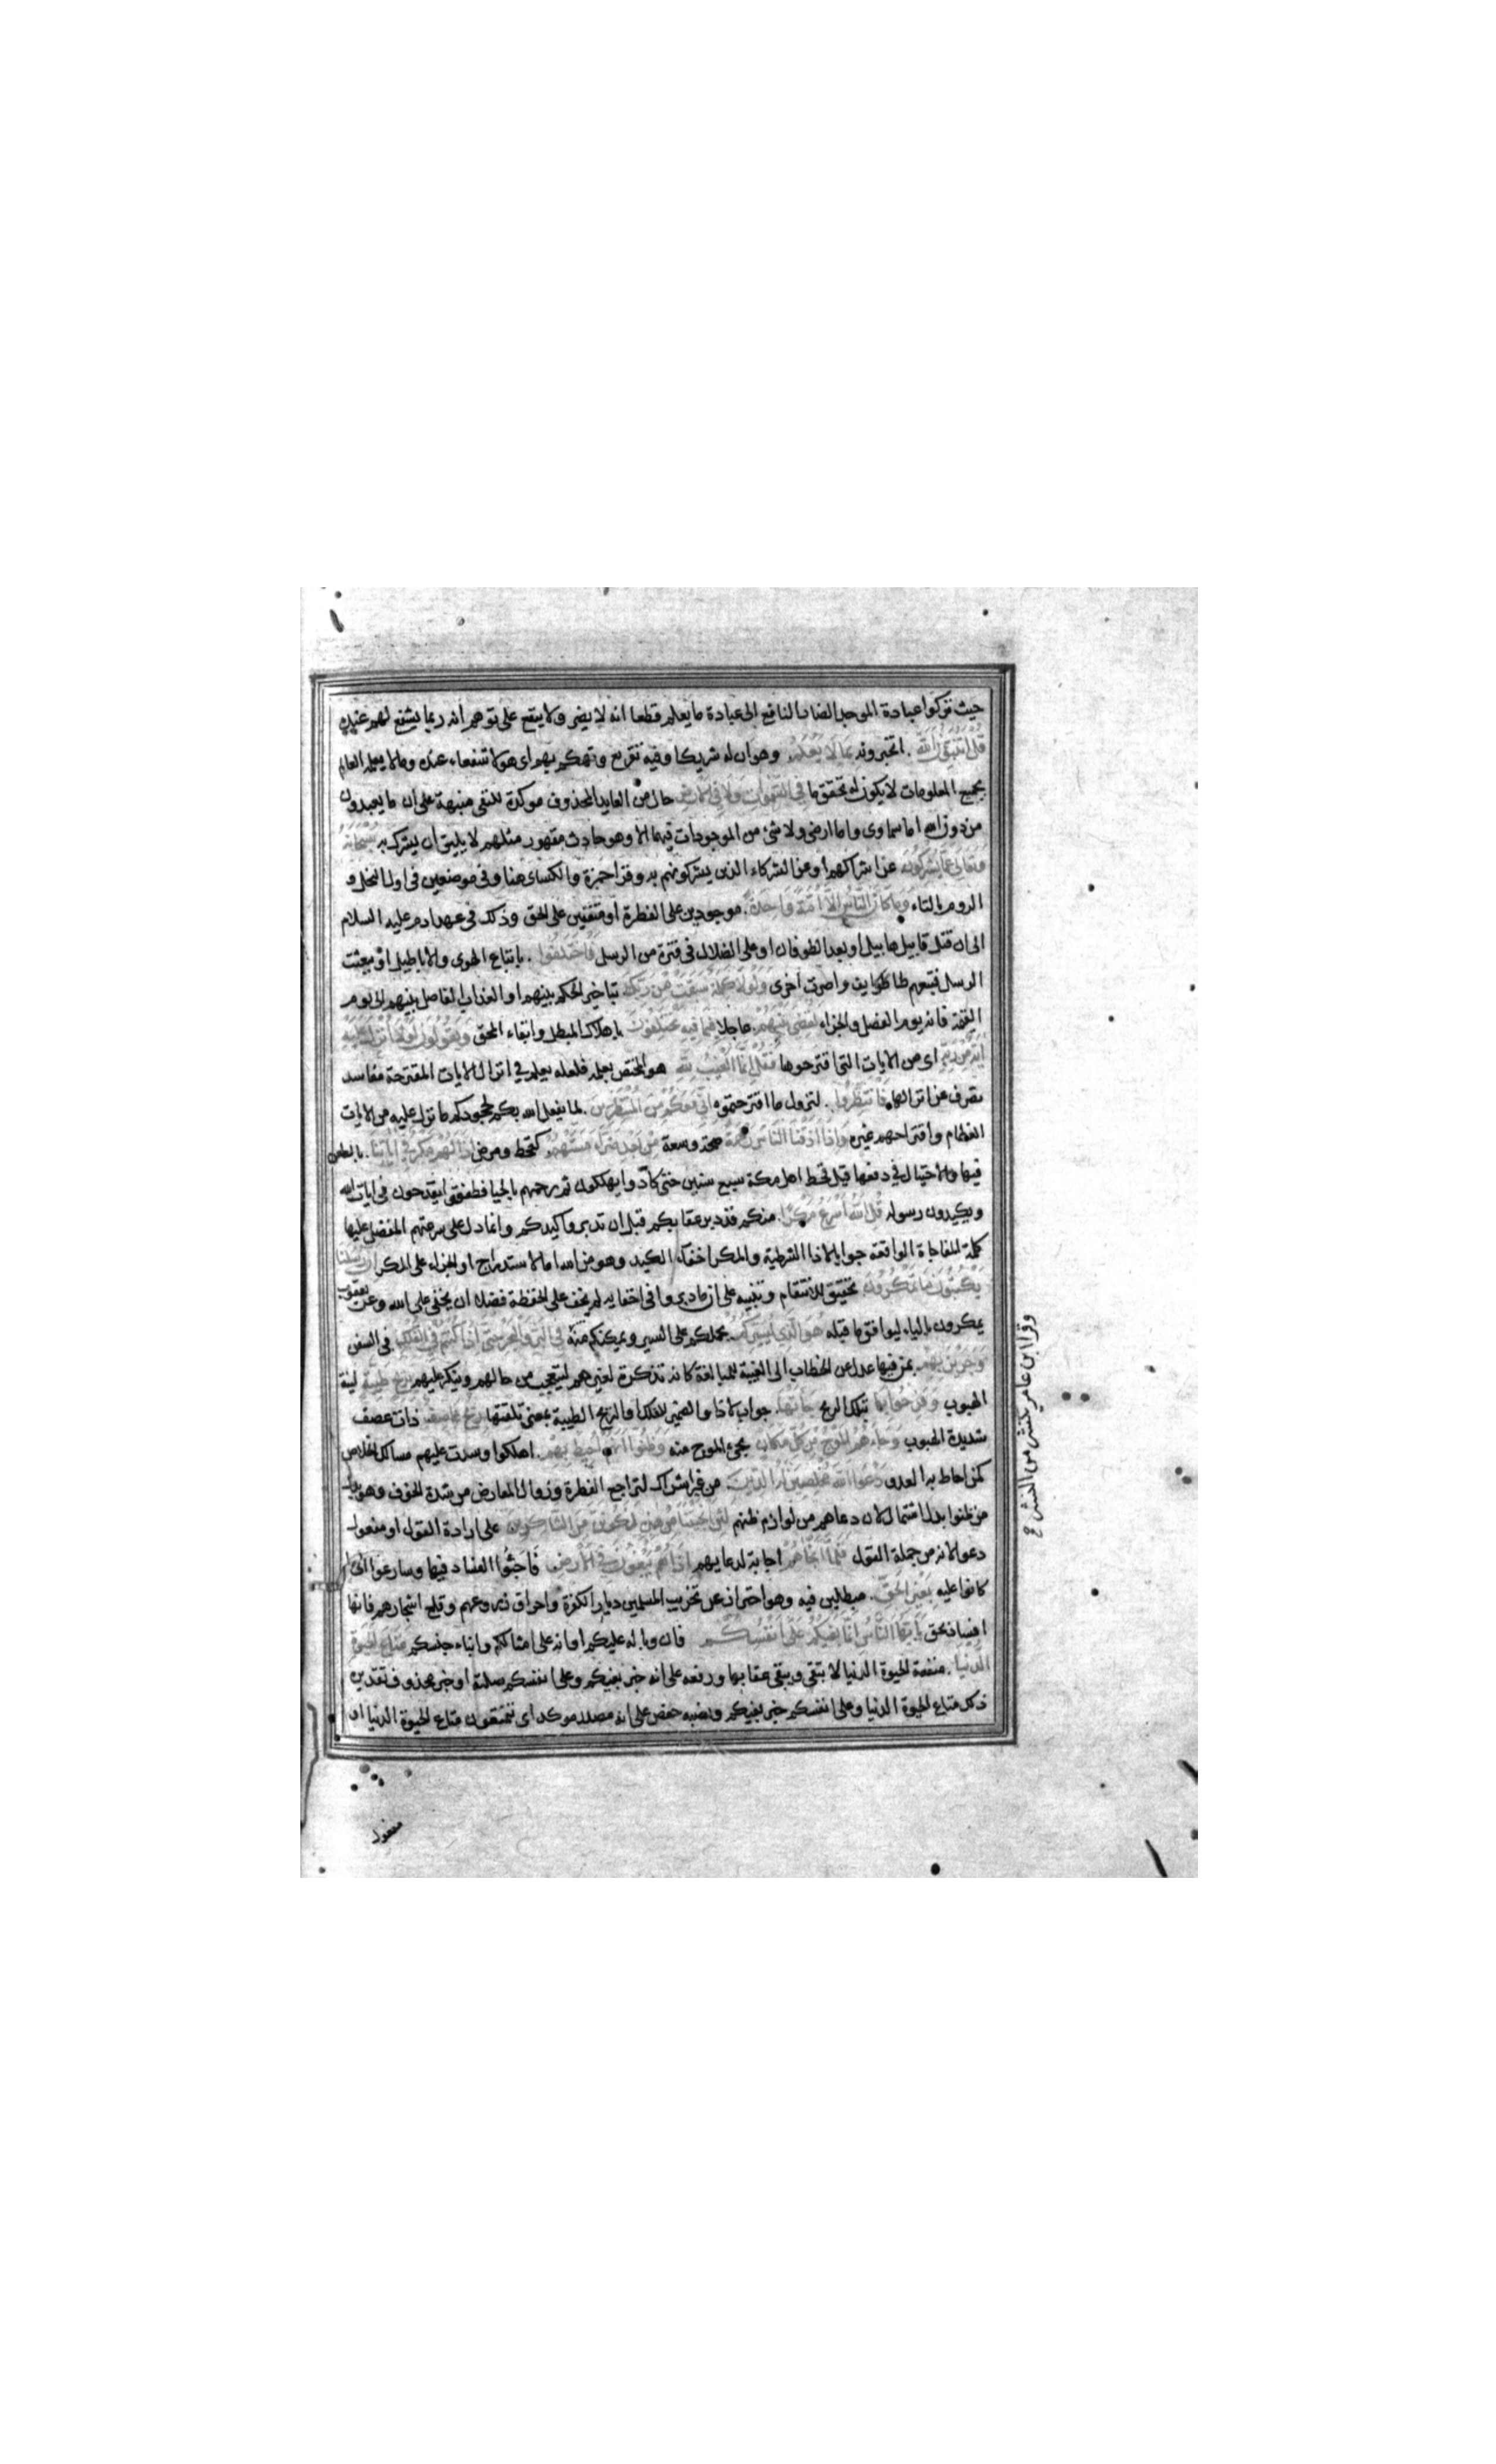 حيث تركوا عبادة الموجد الضار النافع الى عبادة ما يعلم قطعا انه لا يضر ولا ينفع على توهم انه ربما يشفع لهم عنده
قُلْ أَتُنَبِّئُونَ اللَّهَ . اتخبرونه بِمَا لَا يَعْلَمُ وهو ان له شريكا وفيه تقريع وتهكم بهم او هولا شفعاء عنده وما لا يعلمه العالم
بجميع المعلومات لا يكون له تحقق ما فِي السَّمَوَاتِ وَلَا فِي الْأَرْضِ حال من العايد المحذوف موكدة للنفى منبهة على ان ما يعبدون
من دون الله اما سماوى واما ارضى ولا شئ من الموجودات فيهما الا وهو حادث مقهور مثلهم لا يليق ان يشرك به سُبْحَانَهُ
وَتَعَالَى عَمَّا يُشْرِكُونَ عن اشراكهم او عن الشركاء الذين يشركونهم به وقرا حمزة والكساى هنا وفى موضعين فى اول النحل و
الروم بالتاء وَمَا كَانَ النَّاسُ إِلَّا أُمَّةً وَاحِدَةً . موجودين على الفطرة او متفقين على الحق وذلك فى عهد ادم عليه السلام
الى ان قتل قابيل هابيل او بعد الطوفان او على الضلال فى فترة من الرسل فَاخْتَلَفُوا . باتباع الهوى والاباطيل او ببعثت
الرسل فتبعهم طائفة واصرت اخرى وَلَوْلَا كَلِمَةٌ سَبَقَتْ مِنْ رَبِّكَ بتاخير الحكم بينهم او العذاب الفاصل بينهم الى يوم
القيمة فانه يوم الفصل والجزاء لَقُضِيَ بَيْنَهُمْ عاجلا فِيمَا فِيهِ يَخْتَلِفُونَ باهلاك المبطل وابقاء المحق وَيَقُولُونَ لَوْلَا أُنْزِلَ عَلَيْهِ
آيَةٌ مِنْ رَبِّهِ اى من الايات التى اقترحوها فَقُلْ إِنَّمَا الْغَيْبُ لِلَّهِ هو المختص بعلمه فلعله يعلم فى انزال الايات المقترحة مفاسد
تصرف عن انزالها فَانْتَظِرُوا . لنزول ما اقترحتموه إِنِّي مَعَكُمْ مِنَ الْمُنْتَظِرِينَ . لما يفعل الله بكم لجحودكم ما نزل عليه من الايات
العظام واقتراحهم غيره وَإِذَا أَذَقْنَا النَّاسَ رَحْمَةً صحة وسعة مِنْ بَعْدِ ضَرَّاءَ مَسَّتْهُمْ كقحط ومرض إِذَا لَهُمْ مَكْرٌ فِي آيَاتِنَا . بالطعن
فيها والاحتيال فى دفعها قيل قحط اهل مكة سبع سنين حتى كادوا يهلكون ثم رحمهم بالحيا فطفقوا يقدحون فى ايات الله
ويكيدون رسوله قُلِ اللَّهُ أَسْرَعُ مَكْرًا . منكم قد دبر عقابكم قبل ان تدبروا كيدكم وانما دل على سرعتهم المفضل عليها
كلمة المفاجاة الواقعة جوابا لاذا الشرطية والمكر اخفاء الكيد وهو من الله اما الاستدراج او الجزاء على المكر إِنَّ رُسُلَنَا
يَكْتُبُونَ مَا تَمْكُرُونَ تحقيق للانتقام وتنبيه على ان ما دبروا فى اخفايه لم يخف على الحفظة فضلا ان يخفى على الله وعن يعقوب
يمكرون بالياء ليوافق ما قبله هُوَ الَّذِي يُسَيِّرُكُمْ يحملكم على السير ويمكنكم منه فِي الْبَرِّ وَالْبَحْرِ حَتَّى إِذَا كُنْتُمْ فِي الْفُلْكِ فى السفن
وَجَرَيْنَ بِهِمْ بمن فيها عدل عن الخطاب الى الغيبة للمبالغة كانه تذكرة لغيرهم ليتعجب من حالهم وينكر عليهم بِرِيحٍ طَيِّبَةٍ لينة
الهبوب وَفَرِحُوا بِهَا بتلك الريح جَاءَتْهَا . جواب اذا والضمير للفلك او الريح الطيبة بمعنى تلقتها رِيحٌ عَاصِفٌ ذات عصف
شديدة الهبوب وَجَاءَهُمُ الْمَوْجُ مِنْ كُلِّ مَكَانٍ يجئ الموج منه وَظَنُّوا أَنَّهُمْ أُحِيطَ بِهِمْ . اهلكوا وسدت عليهم مسالك الخلاص
كمن احاط به العدو دَعَوُا اللَّهَ مُخْلِصِينَ لَهُ الدِّينَ . من غير اشراك لتراجع الفطرة وزوال المعارض من شدة الخوف وهو بدل
من ظنوا بدل اشتمال لان دعاهم من لوازم ظنهم لَئِنْ أَنْجَيْتَنَا مِنْ هَذِهِ لَنَكُونَنَّ مِنَ الشَّاكِرِينَ على ارادة القول او مفعول
دعوا لانه من جملة القول فَلَمَّا أَنْجَاهُمْ اجابة لدعايهم إِذَا هُمْ يَبْغُونَ فِي الْأَرْضِ فاجئوا الفساد فيها وسارعوا الى ما
كانوا عليه بِغَيْرِ الْحَقِّ . مبطلين فيه وهو احتراز عن تخريب المسلمين ديار الكفرة واحراق زروعهم وقلع اشجارهم فانها
افساد بحق يَا أَيُّهَا النَّاسُ إِنَّمَا بَغْيُكُمْ عَلَى أَنْفُسِكُمْ فان وباله عليكم او انه على امثالكم وابناء جنسكم مَتَاعَ الْحَيَوةِ
الدُّنْيَا . منفعة الحيوة الدنيا لا تبقى ويبقى عقابها ورفعه على انه خبر بغيكم وعلى انفسكم صلته او خبر محذوف تقديره
ذلك متاع الحيوة الدنيا وعلى انفسكم خبر بغيكم ونصبه حفص على انه مصدر موكد اى تتمتعون متاع الحيوة الدنيا او
مفعول
وقرا ابن عامر ينشركم من النشر